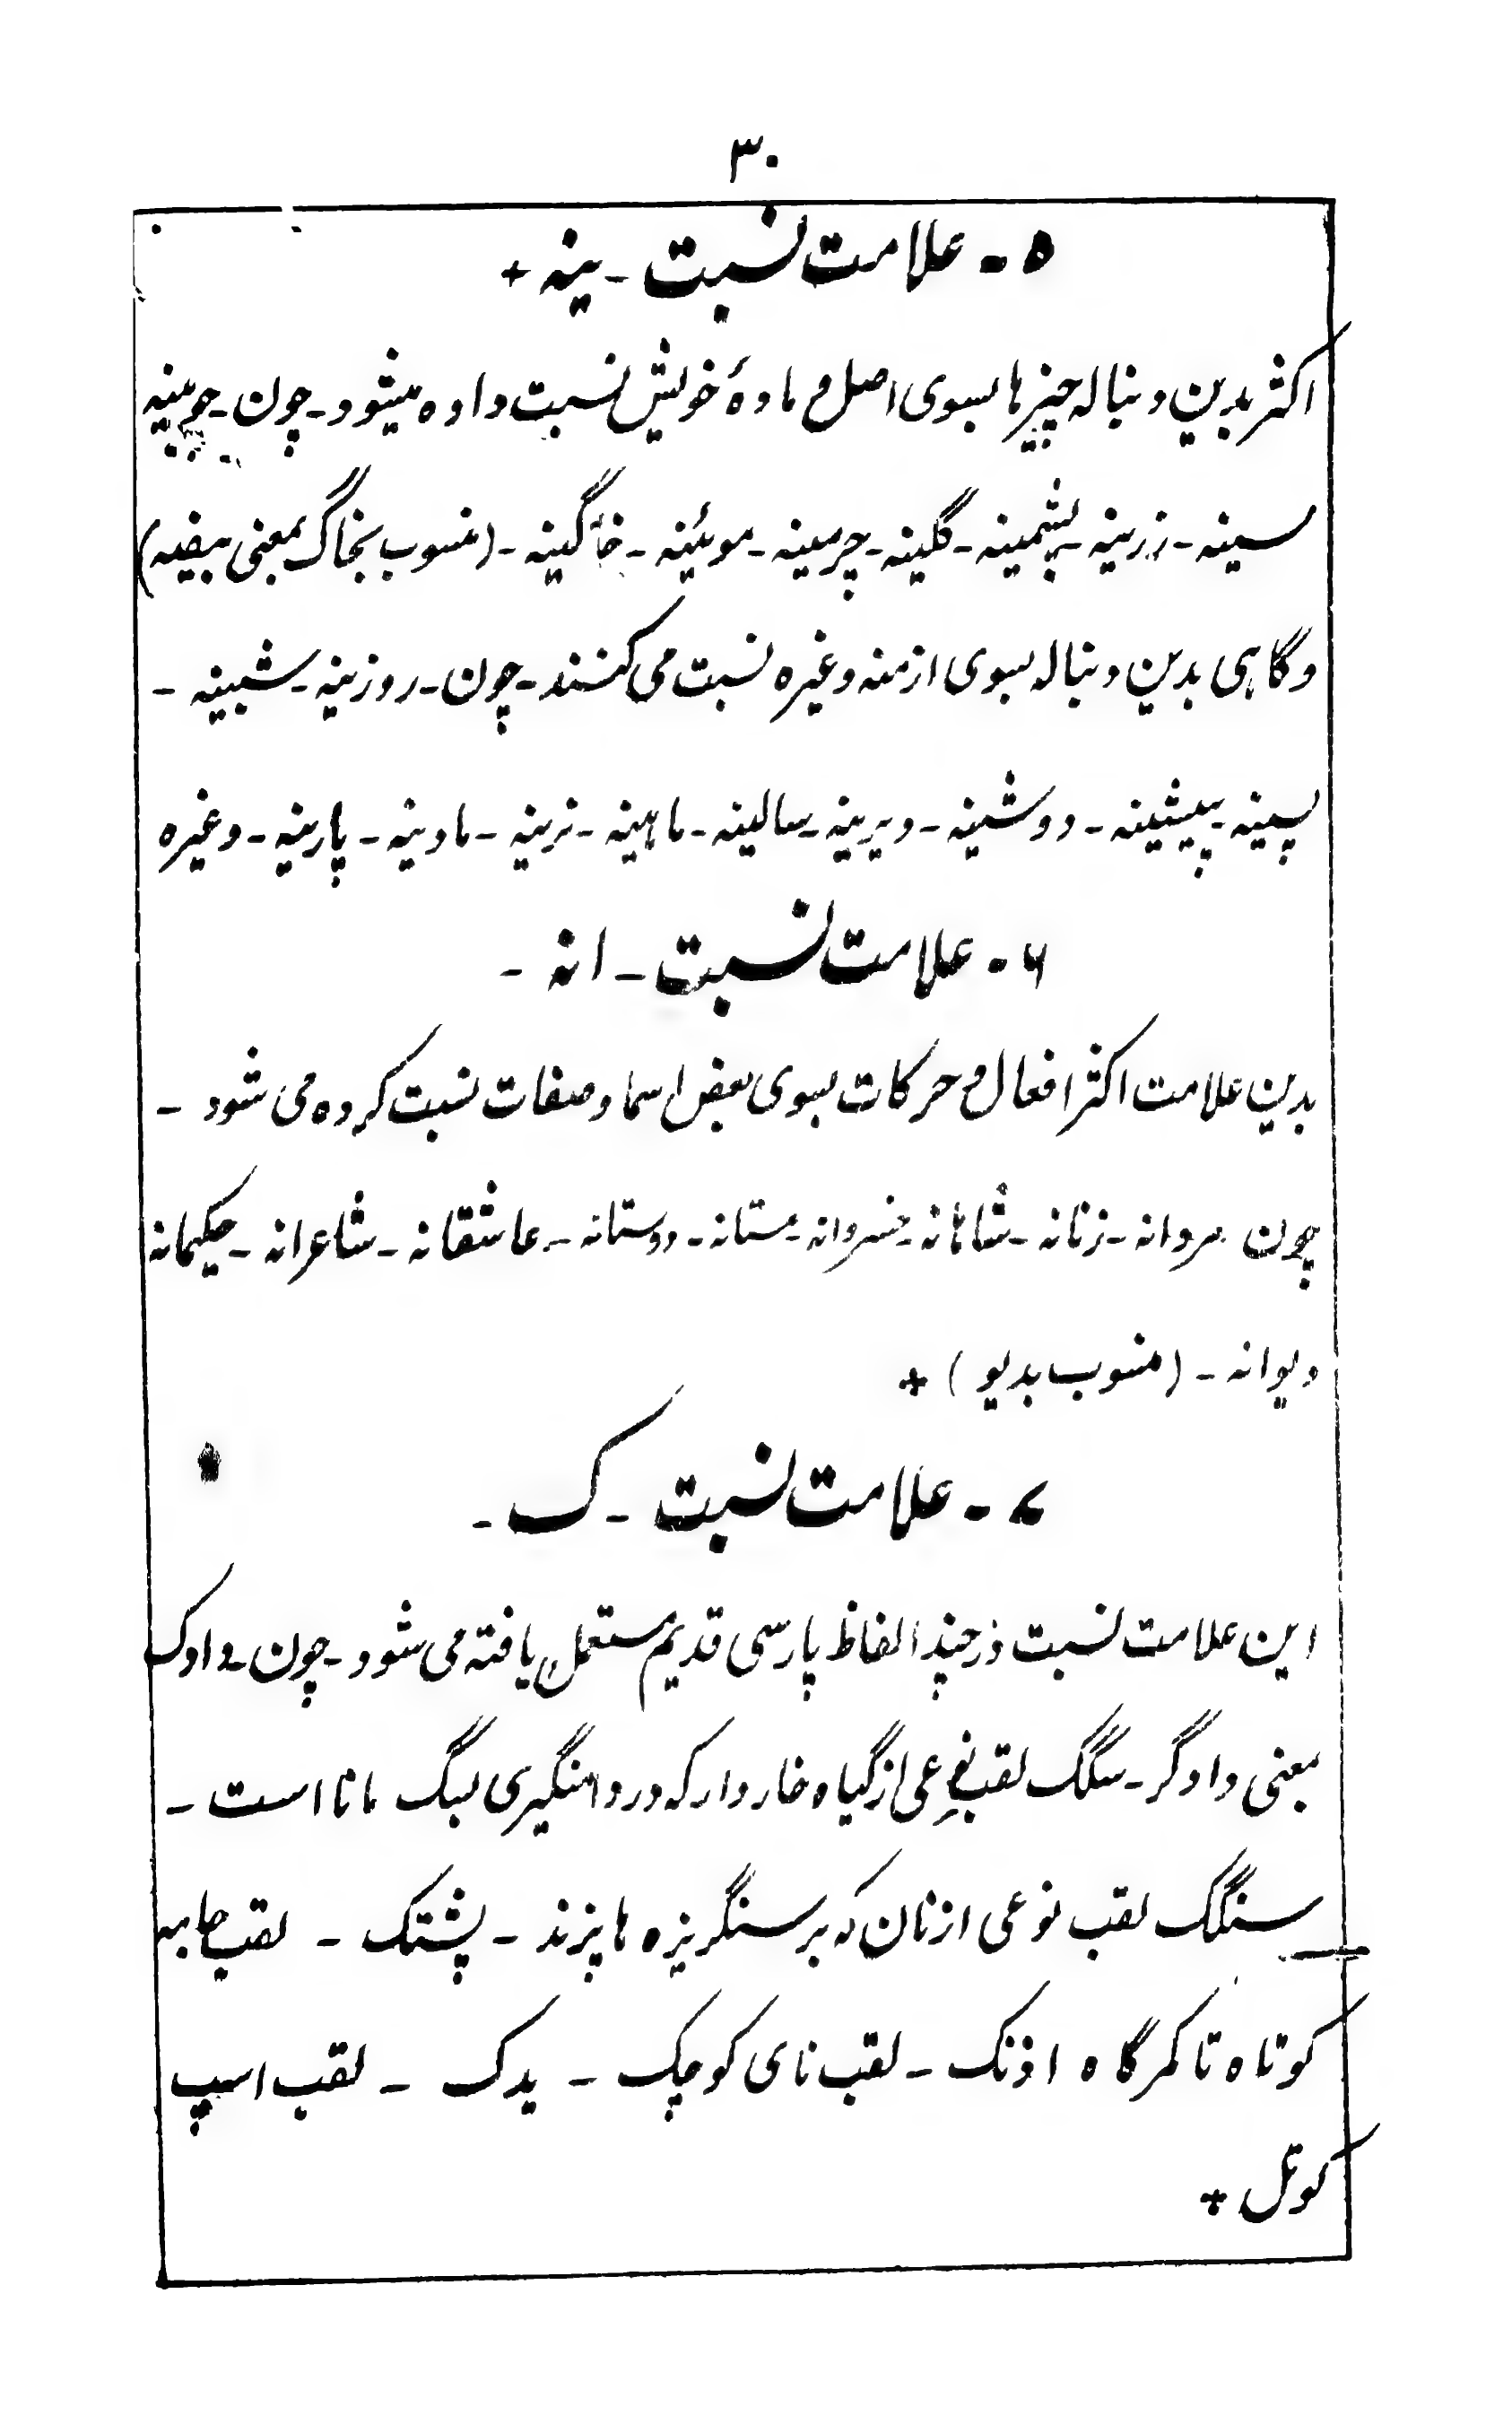 ۳۰
۵ - علامت نسبت - ینه +
اکثر بدین دنباله چیزها بسوی اصل و مادهٔ خویش نسبت داده میشود - چون - چوبینه
سینه - زرینه - پشمینه - گلینه - چرمینه - موئینه - خاگینه - (منسوب بخاگ بمعنی بیضه)
و گاهی بدین دنباله بسوی ازمنه وغیره نسبت می کنند - چون - روزینه - شبینه -
پسینه - پیشینه - دوشینه - دیرینه - سالینه - ماهینه - نرینه - مادینه - پارینه - وغیره
۶ - علامت نسبت - انه -
بدین علامت اکثر افعال و حرکات بسوی بعض اسما و صفات نسبت کرده می شود -
چون مردانه - زنانه - شاهانه - خسروانه - مستانه - دوستانه - عاشقانه - شاعرانه - حکیمانه
دیوانه - (منسوب بدیو) +
۷ - علامت نسبت - ک -
این علامت نسبت در چند الفاظ پارسی قدیم مستعمل یافته می شود - چون - دادک
بمعنی دادگر - سگک لقب نوعی از گیاه خاردار که در دامنگیری بسگ مانا است -
سنگک لقب نوعی از نان که بر سنگریزه ها پزند - پشتک - لقب جامه
کوتاه تا کمرگاه اذنک - لقب نای کوچک - یدک - لقب اسپ
کوتل +